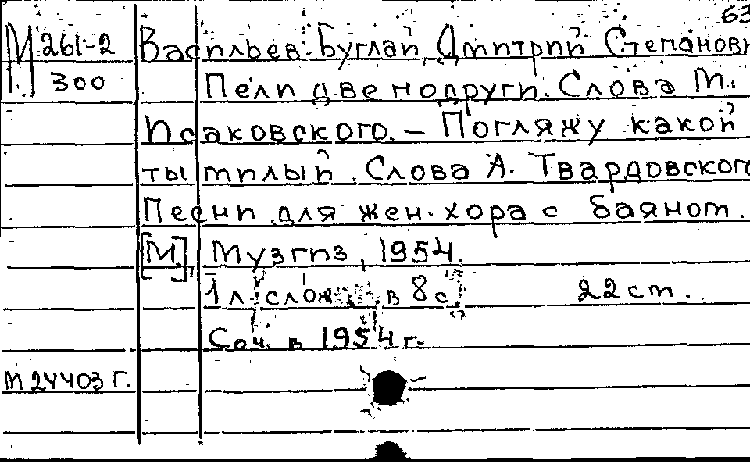 63
М 261-2
300
Васильев-Буглай, Дмитрий Степанови
Пели две подруги. Слова М.
Исаковского. – Погляжу какой
ты милый. Слова А. Твардовского
Песни для жен. хора с баяном.
[М.], Музгиз, 1954.
1 л. слож. в 8 с. 22 см.
Соч. в 1954 г.
М 24403 г.